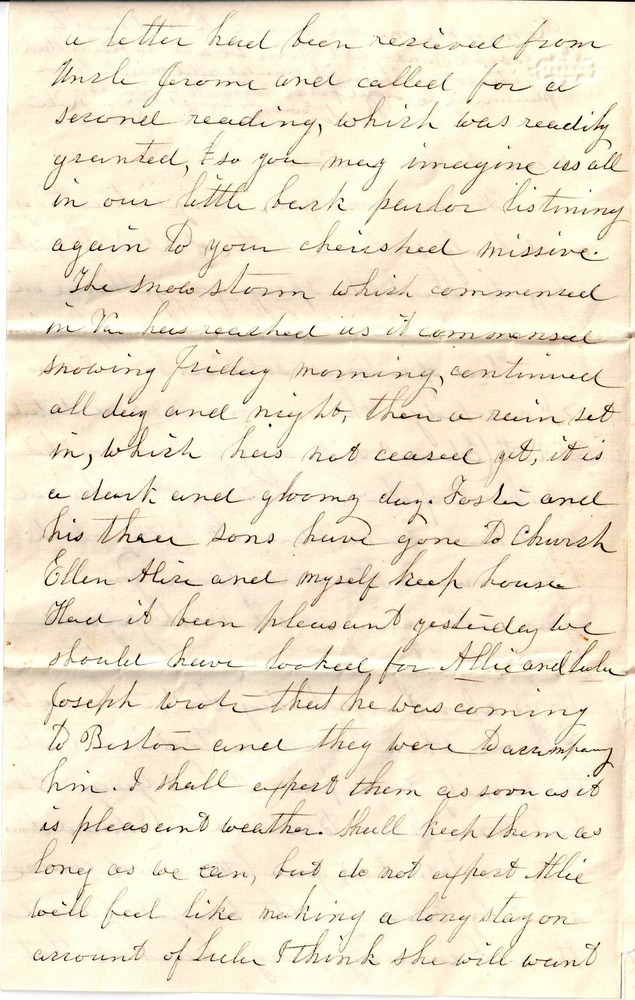 a letter had been recieved from
Uncle Jerome and called for a
second reading, which was readily
granted, & so you may imagine us all
in our little back parlor listining
again to your cherished missive.
The snow storm which commenced
in Va has reached us it commenced
snowing Friday morning, continued
all day and night, then a rain set
in, which has not ceased yet, it is
a dark and gloomy day. Foster and
his three sons have gone to Church
Ellen Alice and myself keep house
Had it been pleasant yesterday we
should have looked for Allie and Lulu
Joseph wrote that he was coming
to Boston and they were to accompany
him. I shall expect them as soon as it
is pleasant weather. Shall keep them as
long as we can, but do not expect Allie
will feel like making a long stay on
account of Lulu I think she will want